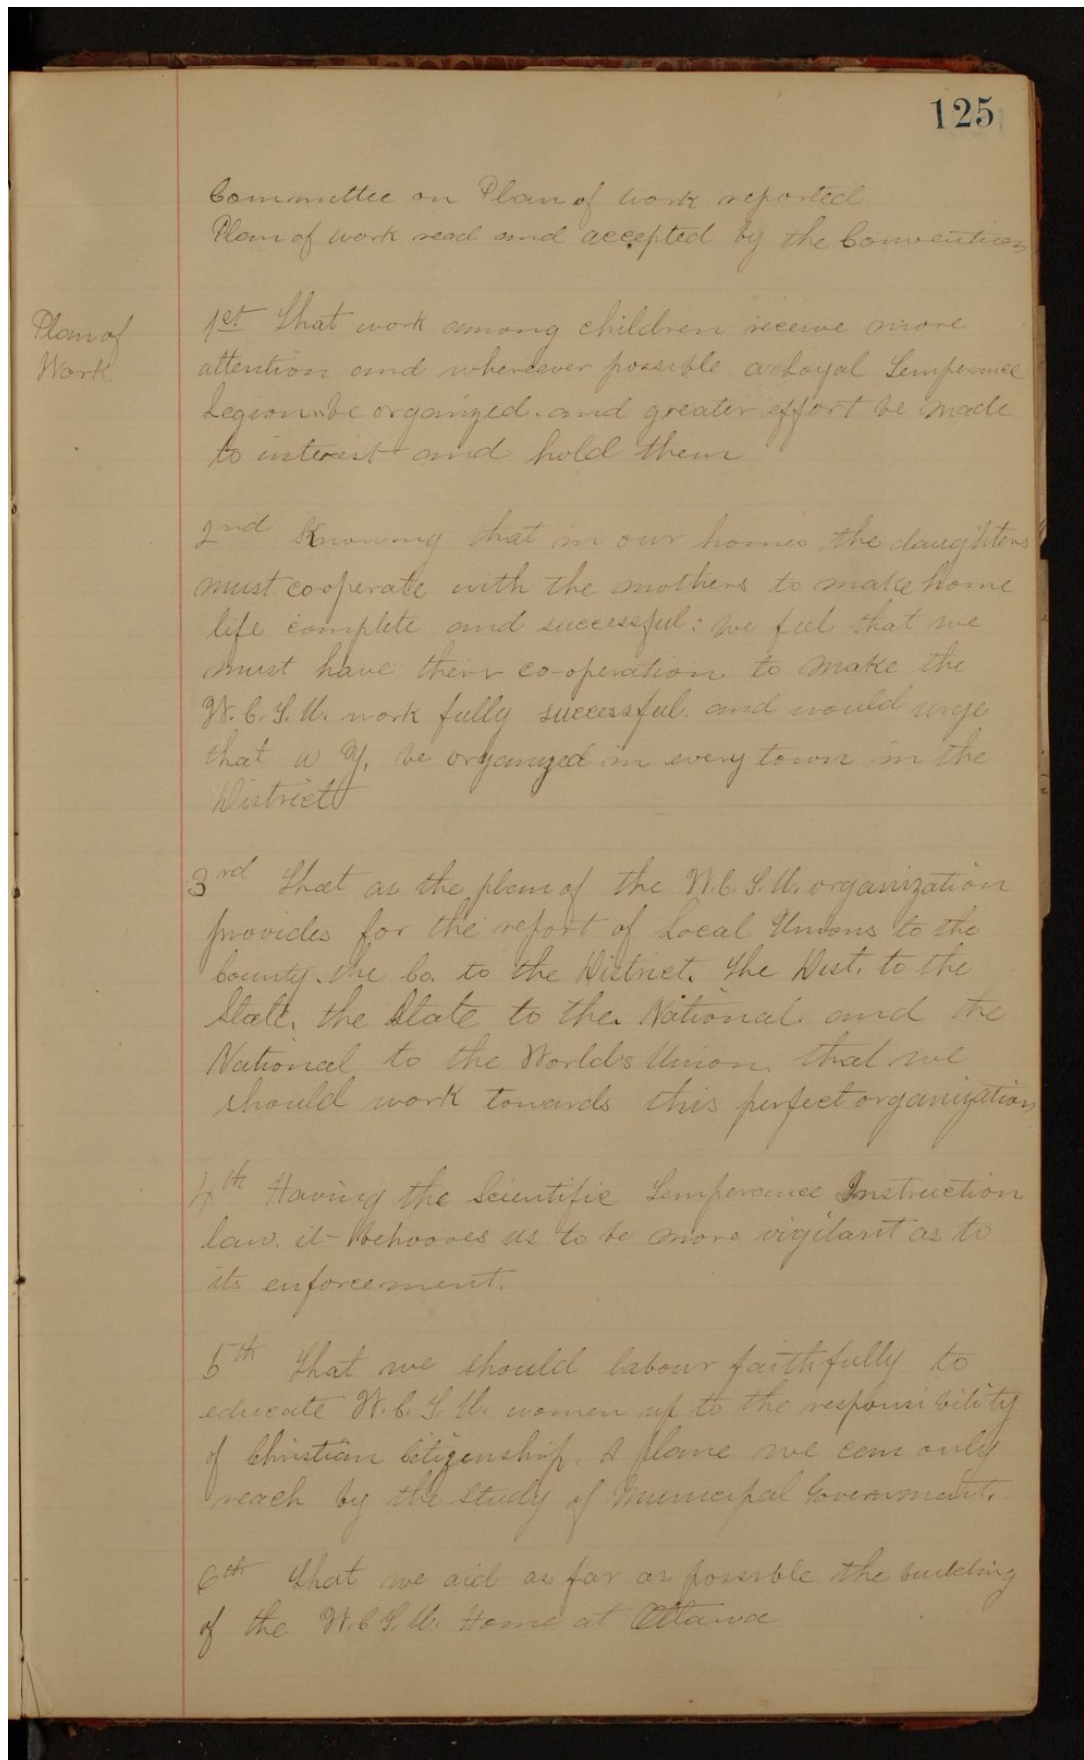 125
Committee on Plan of work reported
Plan of work read and accepted by the Convention
Plan of
Work
1st That work among children receive more
attention and whereever possible a Loyal Temperance
Legion be organized. and greater effort be made
to interest and hold them
2nd Knowing that in our homes the daughters
must cooperate with the mothers to make home
life complete and successful: we feel that we
must have their co-operation to make the
W.C.T.U. work fully successful. and would urge
that a Y. be organized in every town in the
District
3rd That as the plan of the W.C.T.U. organization
provides for the report of Local Unions to the
County. the Co. to the District. The Dist. to the
State. the State to the National. and the
National to the World's Union. that we
should work towards this perfect organization
4th Having the Scientific Temperance Instruction
law. it behooves us to be more vigilant as to
its enforcement.
5th That we should labour faithfully to
educate W.C.T.U. women up to the responsibility
of Christian Citizenship. A plane we can only
reach by the study of Municipal Government.
6th That we aid as far as possible the building
of the W.C.T.U. Home at Ottawa